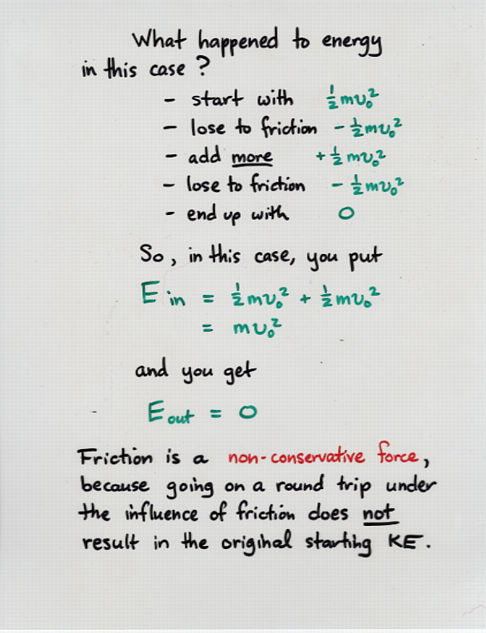 What happened to energy
in this case ?
- start with ½mv₀²
- lose to friction -½mv₀²
- add more +½mv₀²
- lose to friction -½mv₀²
- end up with 0
So, in this case, you put
E in = ½mv₀² + ½mv₀²
= mv₀²
and you get
E out = 0
Friction is a non-conservative force,
because going on a round trip under
the influence of friction does not
result in the original starting KE.